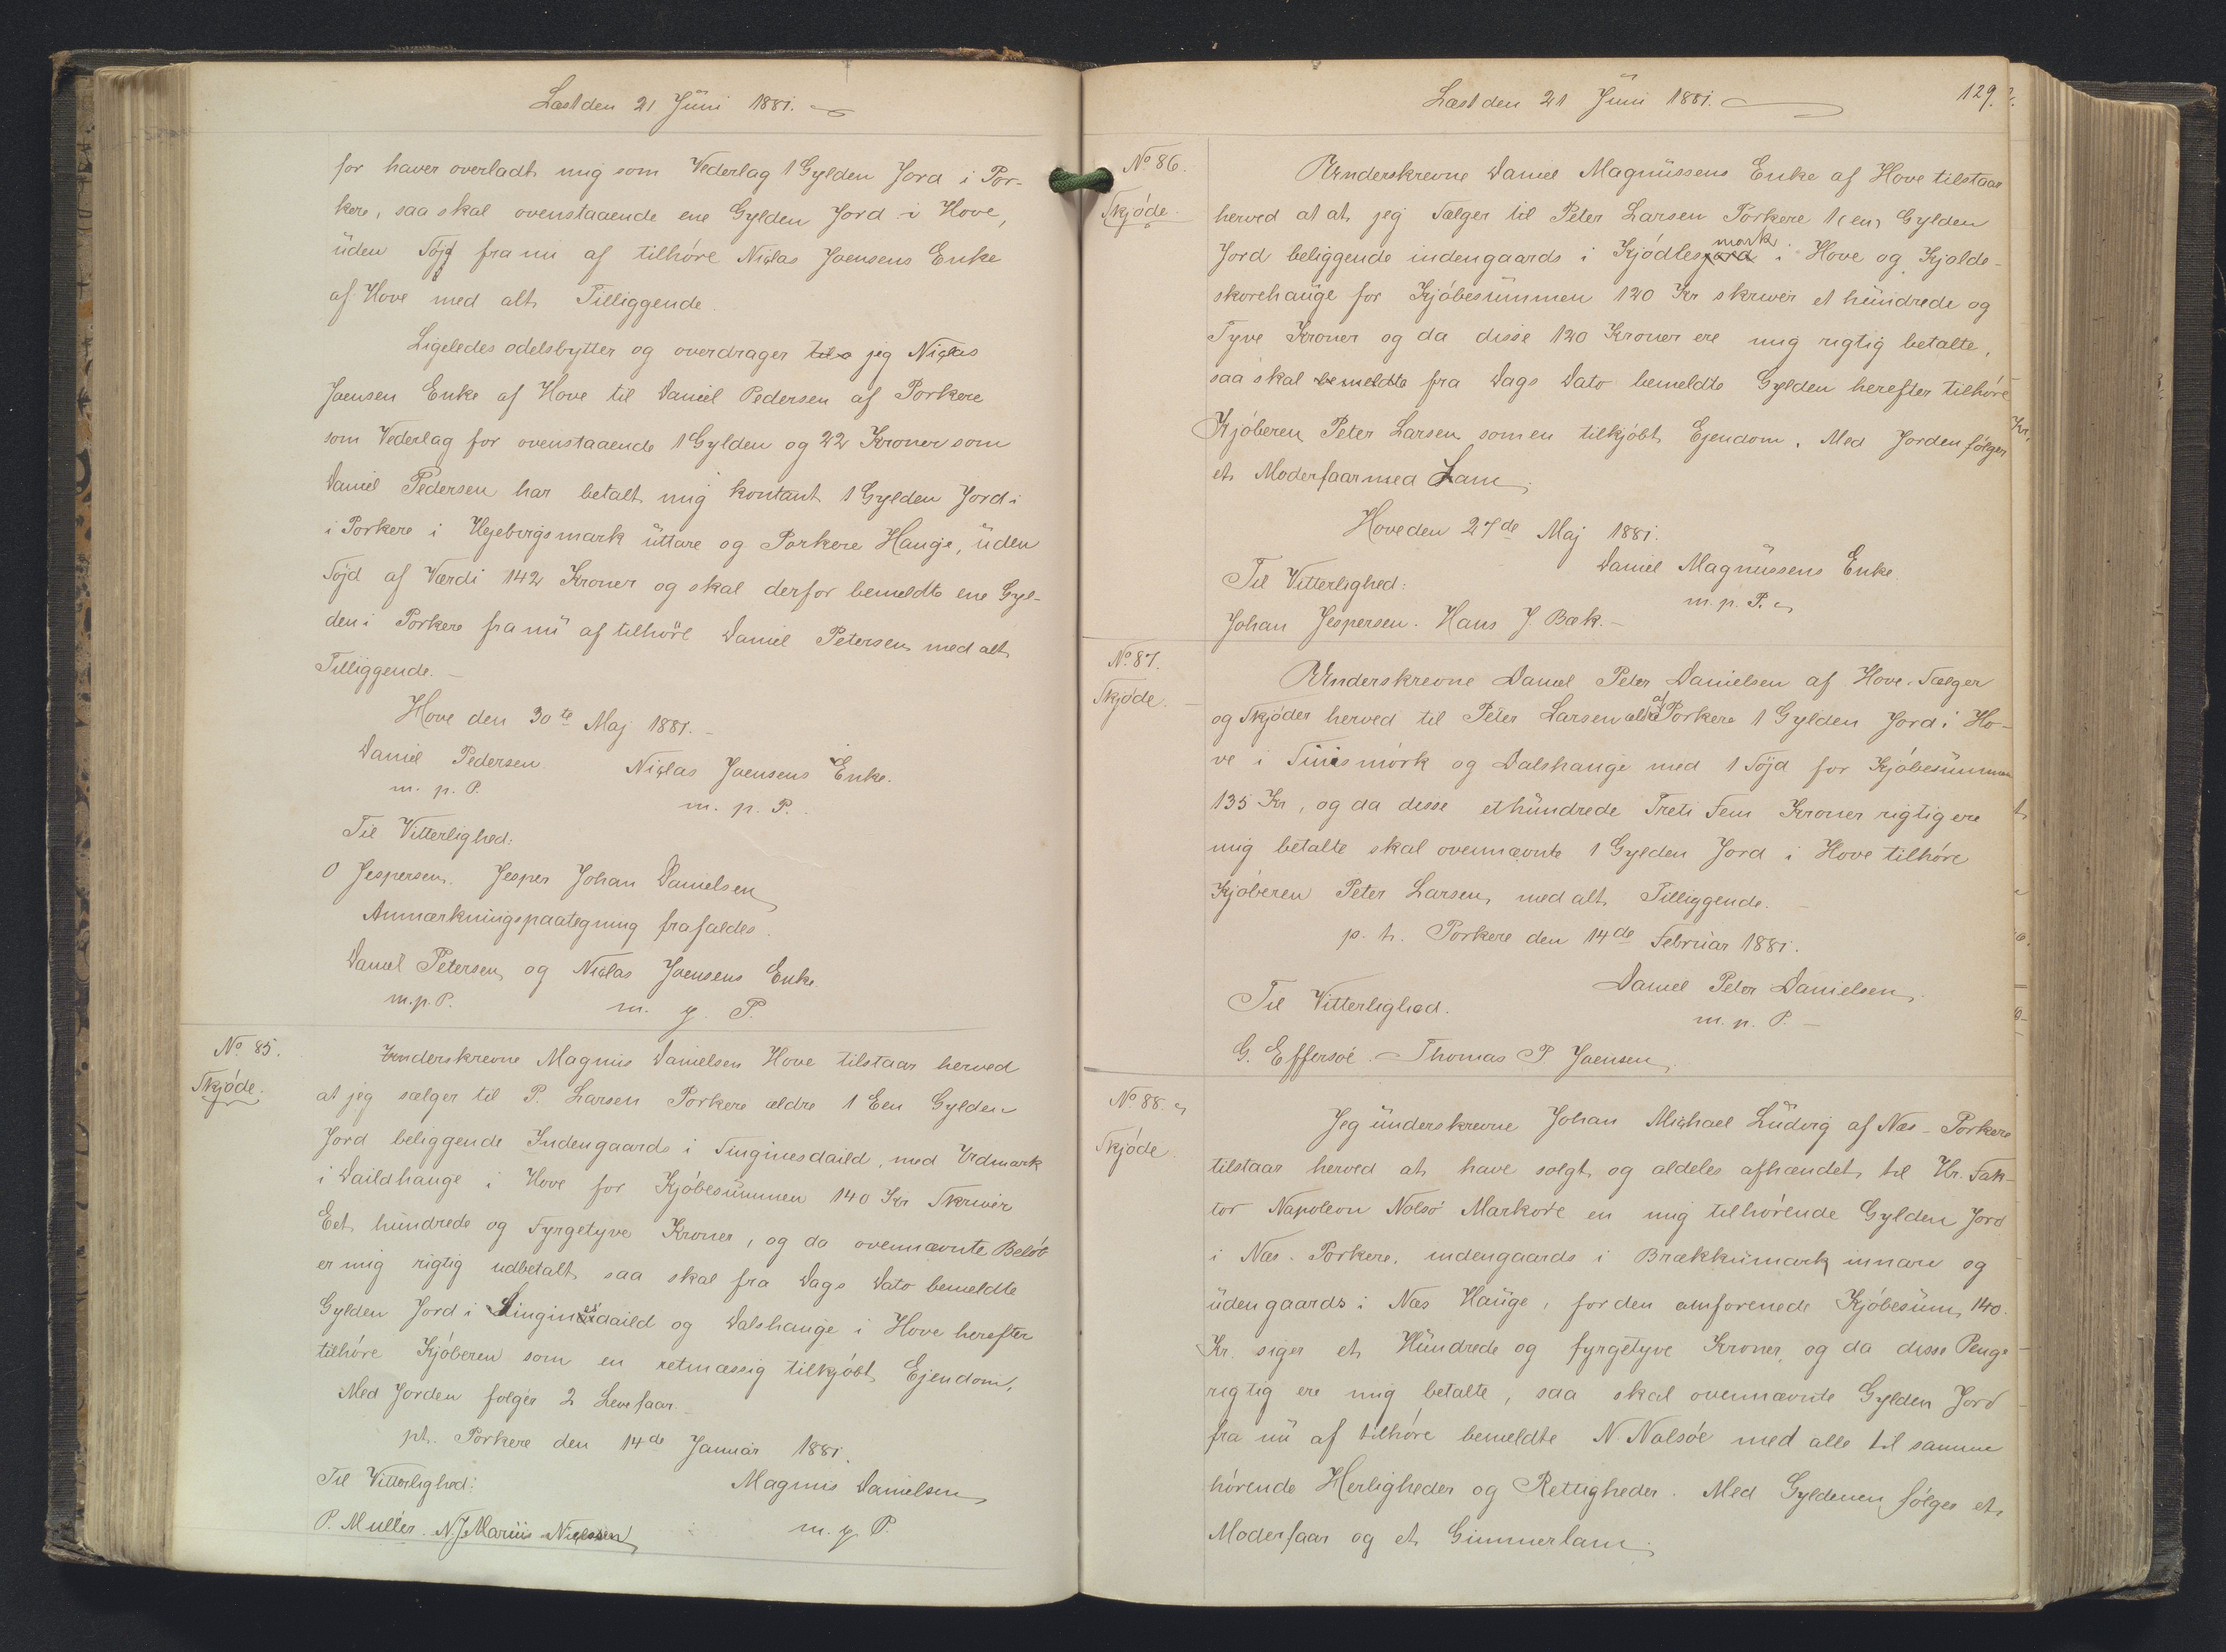 Læst den 21 Juni 1881.
for haver overladt mig som Vederlag 1 Gylden Jord i Por-
kere, saa skal ovenstaaende ene Gylden Jord i Hove,
uden Söjd fra nu af tilhöre Niclas Joensens Enke
af Hove med alt Tilliggende.
Ligeledes odelsbytter og overdrager jeg Niclas
Joensen Enke af Hove til Daniel Pedersen af Porkere
som Vederlag for ovenstaaende 1 Gylden og 22 Kroner som
Daniel Pedersen har betalt mig kontant 1 Gylden Jord i
i Porkere i Hejebirgsmark üttare og Porkere Hauge, uden
Söjd af Værdi 142 Kroner og skal derfor bemeldte ene Gyl-
den i Porkere fra nu af tilhöre Daniel Petersen med alt
Tilliggende.
Hove den 30te Maj 1881.
Daniel Pedersen Niclas Joensens Enke.
m. p. P. m. p. P.
Til Vitterlighed:
O Jespersen. Jesper Johan Danielsen
Anmærkningspaategning frafaldes.
Daniel Petersen og Niclas Joensens Enke
m. p. P. m. p. P.
No. 85.
Skjöde.
Underskrevne Magnus Danielsen Hove tilstaar herved
at jeg sælger til P. Larsen Porkere ældre 1 Een Gylden
Jord beliggende Indengaards i Singinesdaild, med Udmark
i Daildhauge i Hove for Kjöbesummen 140 Kr Skriver
Eet hundrede og Fyrgetyve Kroner, og da ovennævnte Belöb
er mig rigtig udbetalt saa skal fra Dags Dato bemeldte
Gylden Jord i Singinesdaild og Dalshauge i Hove herefter
tilhöre Kjöberen som en retmæssig tilkjöbt Ejendom,
Med Jorden følger 2 Levefaar.
pt. Porkere den 14de Januar 1881.
Til Vitterlighed: Magnus Danielsen
P. Müller. N. J. Marius Nielsen m. p. P.
Læst den 21 Juni 1881. 129.
No. 86.
Skjöde.
Underskrevne Daniel Magnussens Enke af Hove tilstaae
herved at at jeg Sælger til Peter Larsen Porkere 1 (en) Gylden
mark
Jord beliggende indengaards i Kjödlesjord i Hove og Kjolde-
skorehauge for Kjöbesummen 120 Kr skriver et hundrede og
Tyve Kroner og da disse 120 Kroner ere mig rigtig betalte,
saa skal bemeldte fra Dags Dato bemeldte Gylden herefter tilhöre
Kjöberen Peter Larsen som en tilkjöbt Ejendom. Med Jorden fölger
et Moderfaar med Lam.
Hove den 27de Maj 1881.
Daniel Magnussens Enke
Til Vitterlighed: m. p. P.
Johan Jespersen. Hans J. Bæk.
No. 87.
Skjöde.
Underskrevne Daniel Peter Danielsen af Hove Sælger
af
og Skjöder herved til Peter Larsen ældre Porkere 1 Gylden Jord i Ho-
ve i Tinismörk og Dalshauge med 1 Söjd for Kjöbesummen
135 Kr, og da disse ethundrede Treti Fem Kroner rigtig ere
mig betalte skal ovennævnte 1 Gylden Jord i Hove tilhöre
Kjöberen Peter Larsen, med alt Tilliggende.
p. t. Porkere den 14de Februar 1881.
Daniel Peter Danielsen
Til Vitterlighed. m. p. P.
G. Effersöe. Thomas P Joensen
No. 88.
Skjöde
Jeg underskrevne Johan Michael Ludvig af Næs-Porkere
tilstaar herved at have solgt og aldeles afhændet til Hr. Fak-
tor Napoleon Nolsö Markore en mig tilhörende Gylden Jord
i Næs. Porkere, indengaards i Brækkumark innare og
udengaards i Næs Hauge, for den omforenede Kjöbesum, 140.
Kr. siger et Hundrede og fyrgetyve Kroner, og da disse Penge
rigtig ere mig betalte, saa skal ovennævnte Gylden Jord
fra nu af tilhöre bemeldte N. Nolsöe med alle til samme
hörende Herligheder og Rettigheder. Med Gyldenen fölger et
Moderfaar og et Gimmerlam